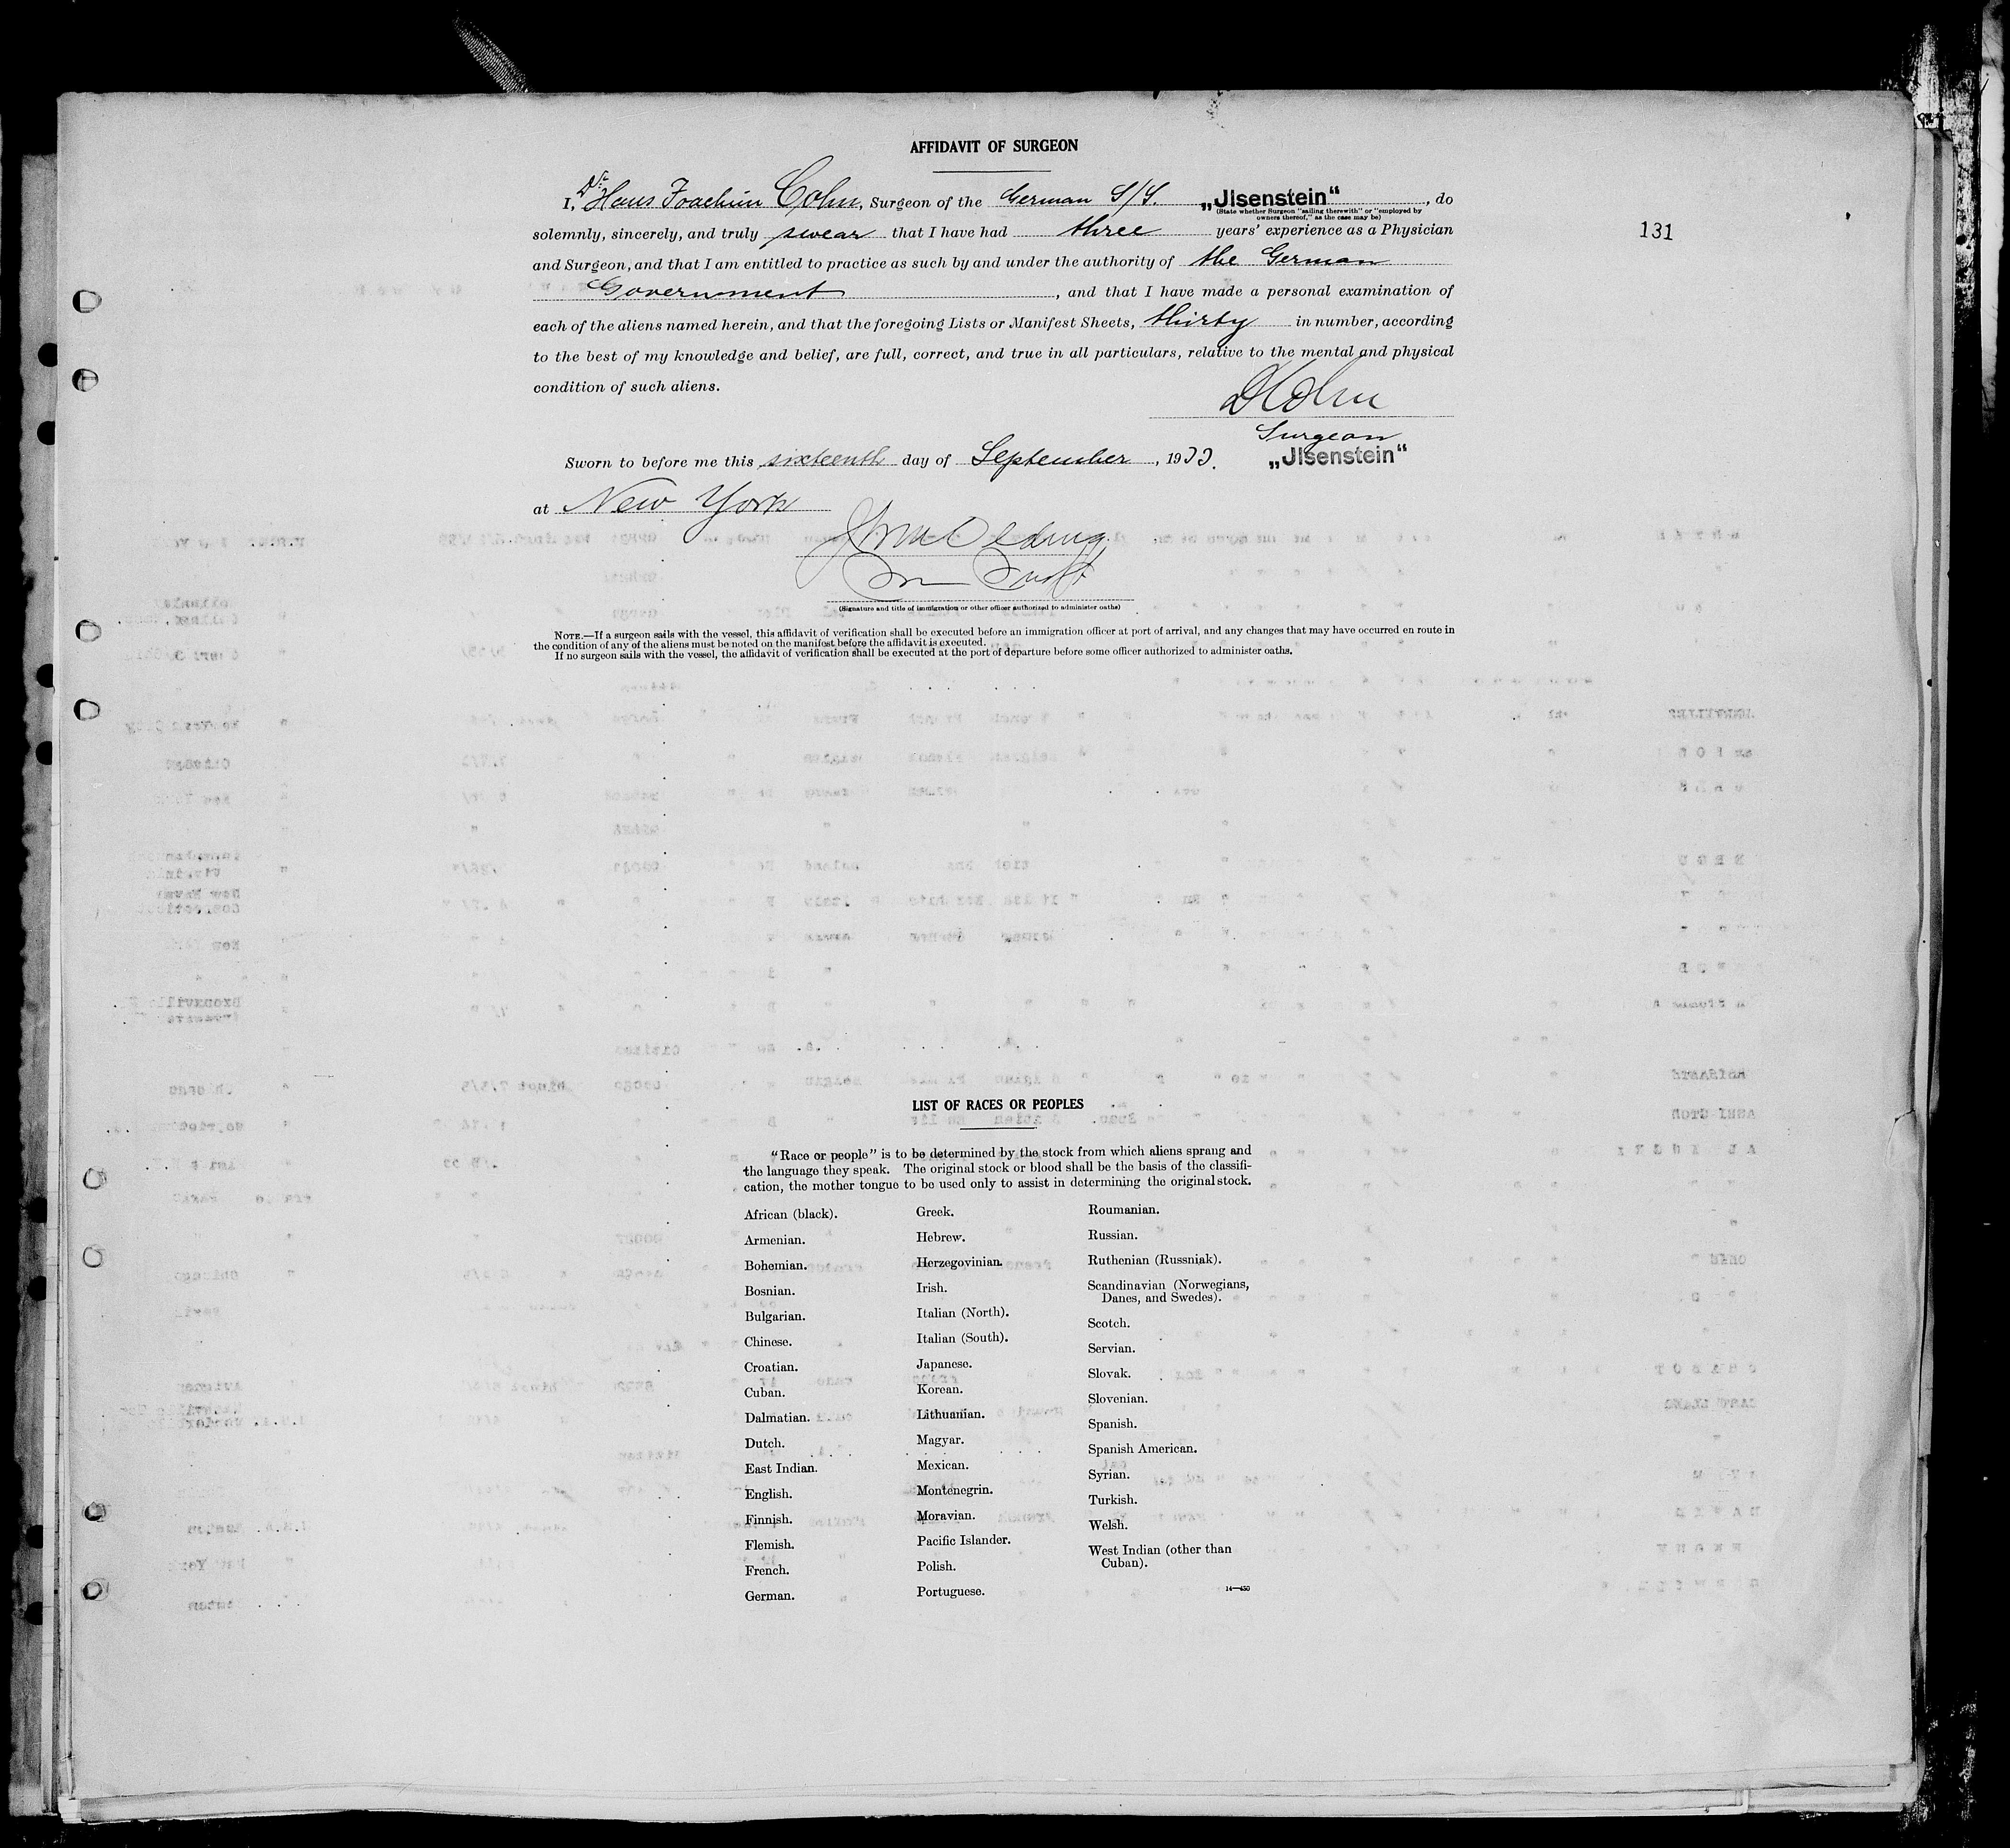 AFFIDAVIT OF SURGEON
I, Dr. Hans Joachim Cohn, Surgeon of the German S/S. „Jlsenstein“, do
(State whether Surgeon "sailing therewith" or "employed by
owners thereof," as the case may be)
solemnly, sincerely, and truly swear that I have had three years' experience as a Physician
131
and Surgeon, and that I am entitled to practice as such by and under the authority of the German
Government, and that I have made a personal examination of
each of the aliens named herein, and that the foregoing Lists or Manifest Sheets, thirty in number, according
to the best of my knowledge and belief, are full, correct, and true in all particulars, relative to the mental and physical
condition of such aliens.
Surgeon
„Jlsenstein“
Sworn to before me this sixteenth day of September, 1933.
at New York
(Signature and title of immigration or other officer authorized to administer oaths)
NOTE.—If a surgeon sails with the vessel, this affidavit of verification shall be executed before an immigration officer at port of arrival, and any changes that may have occurred en route in
the condition of any of the aliens must be noted on the manifest before the affidavit is executed.
If no surgeon sails with the vessel, the affidavit of verification shall be executed at the port of departure before some officer authorized to administer oaths.
LIST OF RACES OR PEOPLES
"Race or people" is to be determined by the stock from which aliens sprang and
the language they speak. The original stock or blood shall be the basis of the classifi-
cation, the mother tongue to be used only to assist in determining the original stock.
African (black).
Armenian.
Bohemian.
Bosnian.
Bulgarian.
Chinese.
Croatian.
Cuban.
Dalmatian.
Dutch.
East Indian.
English.
Finnish.
Flemish.
French.
German.
Greek.
Hebrew.
Herzegovinian.
Irish.
Italian (North).
Italian (South).
Japanese.
Korean.
Lithuanian.
Magyar.
Mexican.
Montenegrin.
Moravian.
Pacific Islander.
Polish.
Portuguese.
Roumanian.
Russian.
Ruthenian (Russniak).
Scandinavian (Norwegians,
Danes, and Swedes).
Scotch.
Servian.
Slovak.
Slovenian.
Spanish.
Spanish American.
Syrian.
Turkish.
Welsh.
West Indian (other than
Cuban).
14—430